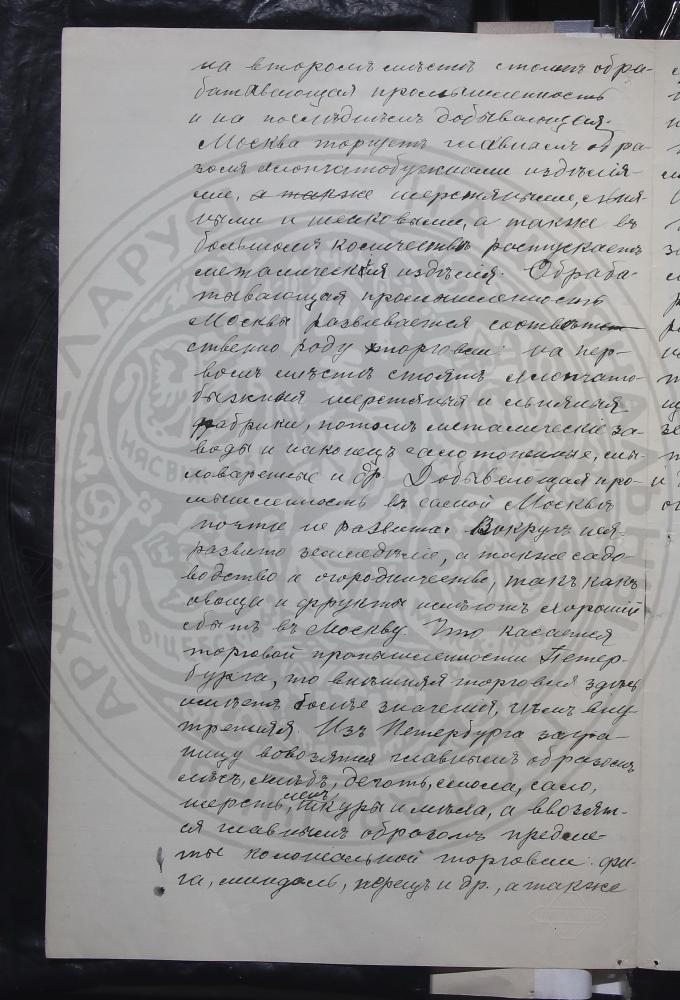 на второмъ мѣстѣ стоитъ обра-
батавающая промышленность
и на послѣднѣмъ добывающая.
Москва торгуетъ главнымъ обра
зомъ хлопчатобумажными издѣлія-
ми, а также шерстяными, льня-
ными и шелковыми, а также въ
большомъ количествѣ роспускаетъ
металическія издѣлія. Обраба-
тывающая промышленность
Москвы развивается соотвѣтст-
ственно роду торговли: на пер-
вомъ мѣстѣ стоятъ хлопчато-
бумжныя шерстяныя и льняныя
фабрики, потомъ металическіе за-
воды и наконецъ салотопенные, мы-
ловаренные и др. Добывающая про-
мышленность въ самой Москвѣ
почти не развита. Вокругъ нея
развито земледѣліе, а также садо-
водство и огородничество, такъ какъ
овощи и фрукты имѣютъ хорошій
сбытъ въ Москву. Что касается
торговой промышленности Петер-
бурга, то внѣшняя торговля здѣсь
имѣетъ болѣе значенія, чѣмъ вну
тренняя. Изъ Петербурга загра-
ницу вовозятся главнымъ образомъ
лѣсъ, хлѣбъ, деготь, смола, сало,
ленъ,
шерсть, шкуры и мѣха, а ввозят-
ся главнымъ образомъ предме-
ты колоніальной торговли: фи-
га, миндаль, перецъ и др., а также